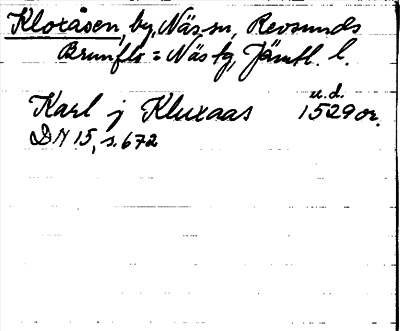 Kloxåsen, by, Näs sn, Revsunds
Brunflo = Näs tg, Jämtl. l.
u. d.
Karl j Kluxaas 1529 or.
DN 15, s. 672